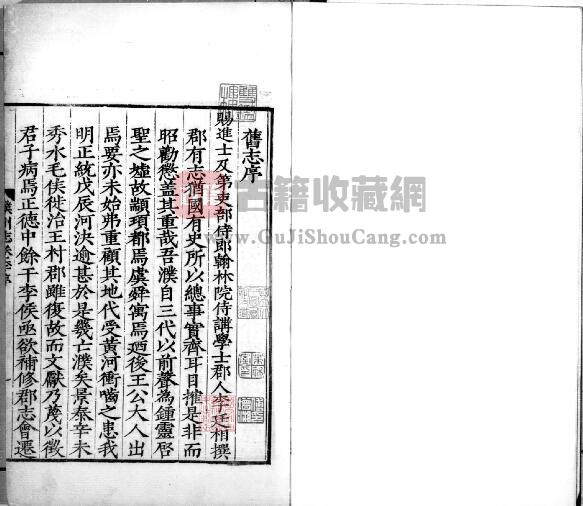 舊志序
賜進士及第吏部侍郎翰林院侍講學士郡人李廷相撰
郡有志猶國有史所以總事實齊耳目摧是非而
昭勸懲蓋其重哉吾濮自三代以前聲為鍾靈啓
聖之墟故顓頊都焉虞舜寓焉廼後王公大人出
焉要亦未始弗重顧其地代受黃河衝嚙之患我
明正統戊辰河決逾甚於是幾亡濮矣景泰辛未
秀水毛侯徙治王村郡雖復故而文厭乃蔑以徵
君子病焉正德中餘干李侯亟欲補修郡志會遷
濮州志
序
古籍收藏網
www.GuJiShouCang.com